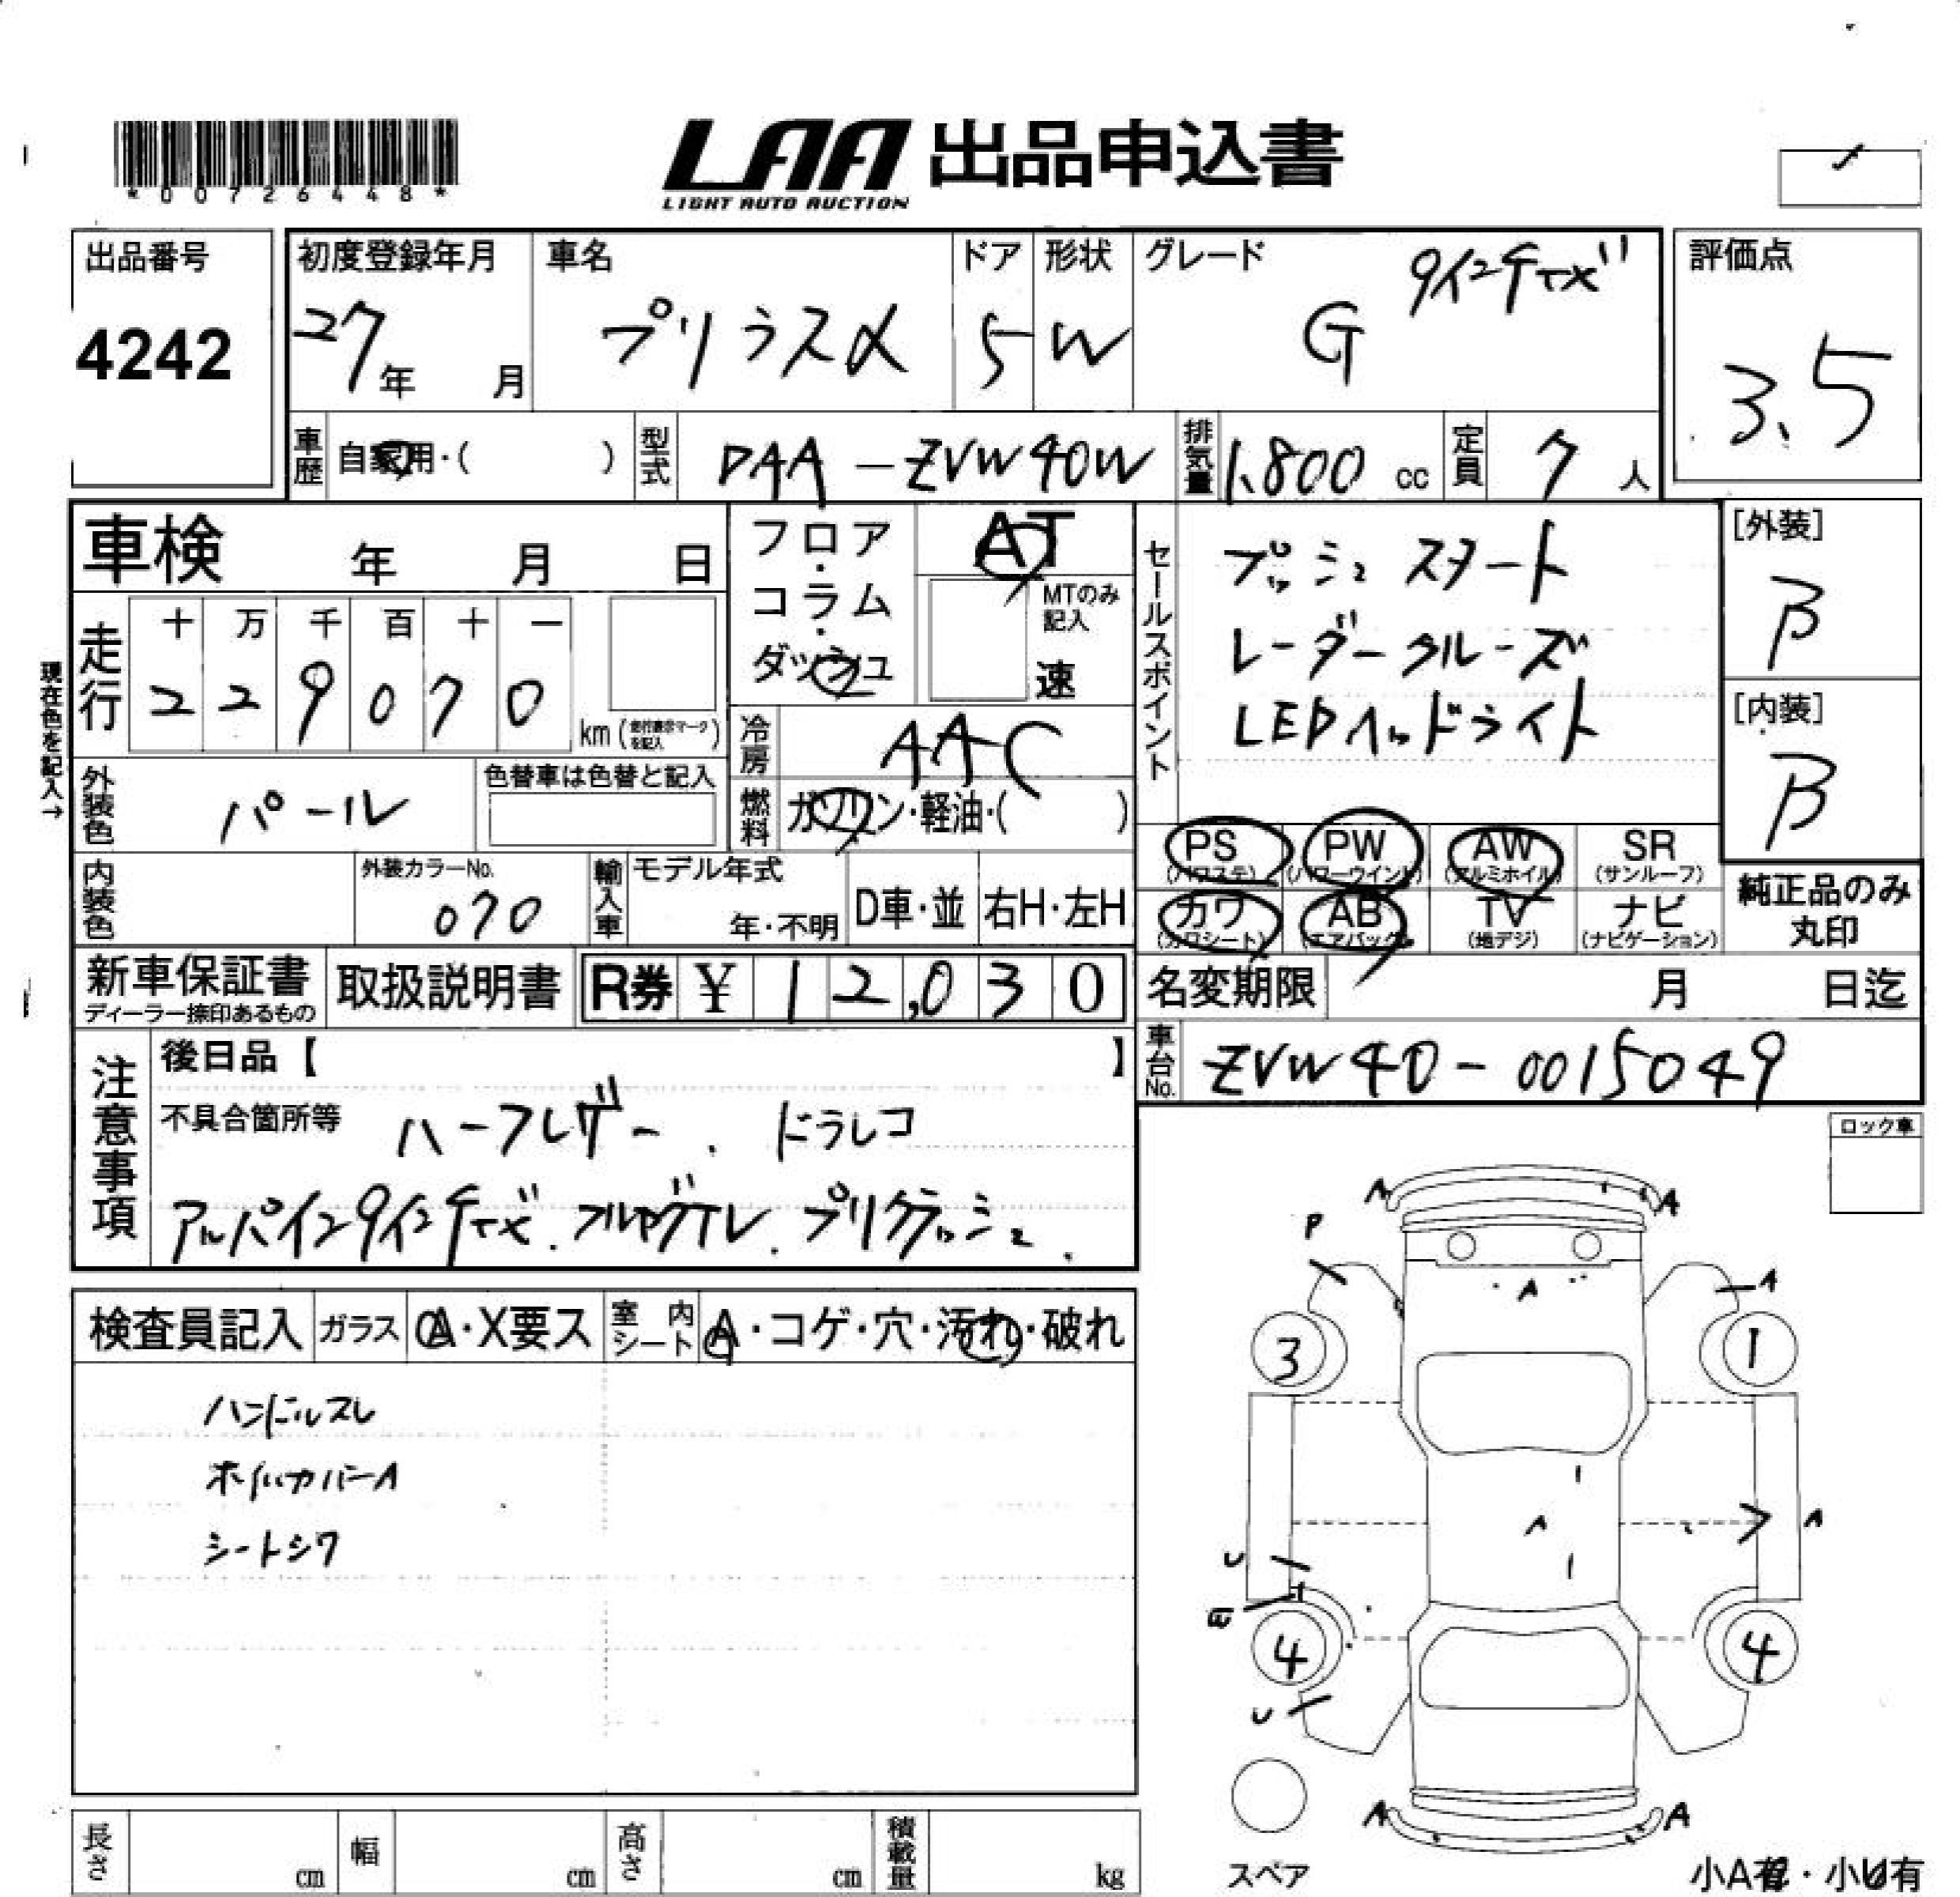 *00726448*
LAA 出品申込書
LIGHT AUTO AUCTION
出品番号
4242
初度登録年月
27年 月
車名
プリウスα
ドア
5
形状
W
グレード
9インチナビ
G
評価点
3.5
車歴
自家用・( )
型式
DAA-ZVW40W
排気量
1.800 cc
定員
7人
車検 年 月 日
フロア・コラム・ダッシュ
AT
MTのみ記入
速
セールスポイント
プッシュスタート
レーダークルーズ
LEDヘッドライト
[外装]
B
[内装]
B
現在色を記入→
走行
十 万 千 百 十 一
2 2 9 0 7 0
km(走行表示マークを記入)
冷房
AAC
外装色
パール
色替車は色替と記入
燃料
ガソリン・軽油・( )
PS
(パワステ)
PW
(パワーウインド)
AW
(アルミホイル)
SR
(サンルーフ)
カワ
(カワシート)
AB
(エアバック)
TV
(地デジ)
ナビ
(ナビゲーション)
純正品のみ
丸印
内装色
外装カラーNo.
070
輸入車
モデル年式
年・不明
D車・並
右H・左H
新車保証書
ディーラー捺印あるもの
取扱説明書
R券 ¥ 12,030
名変期限 月 日迄
車台No.
ZVW40-0015049
注意事項
後日品【 】
不具合箇所等 ハーフレザー.ドラレコ
アルパイン9インチナビ.フルセグTV.プリクラッシュ.
ロック車
検査員記入
ガラス
A・X要ス
室内シート
A・コゲ・穴・汚れ・破れ
ハンドルスレ
ホイルカバーA
シートシワ
A
A
P
A
A
3
1
A
A
U
4
4
U
A
A
スペア
長さ cm
幅 cm
高さ cm
積載量 kg
小A有・小U有